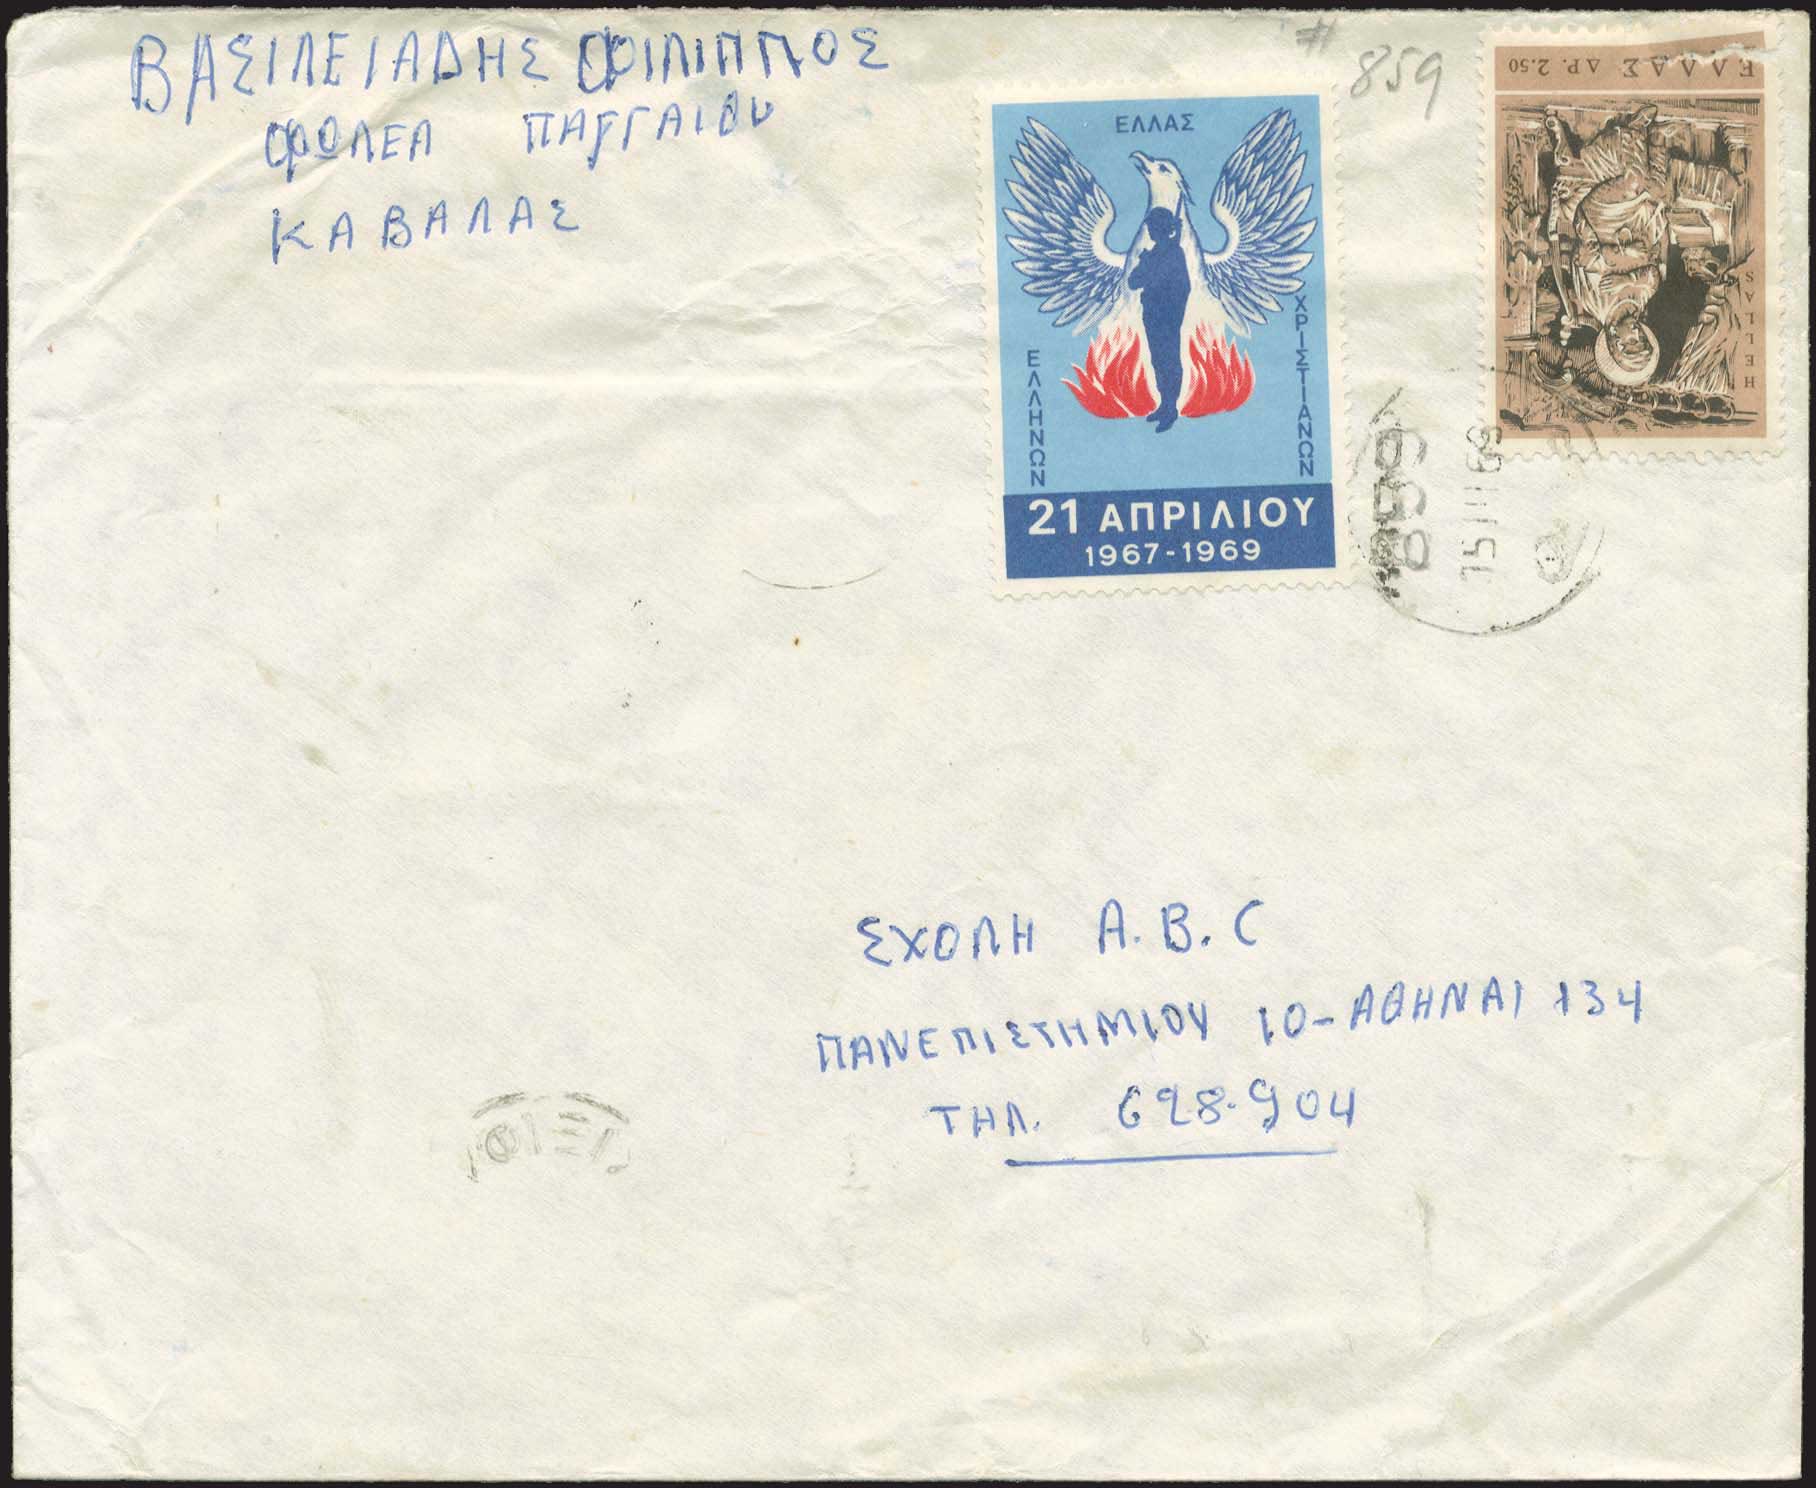 ΒΑΣΙΛΕΙΑΔΗΣ ΦΙΛΙΠΠΟΣ
ΦΩΛΕΑ ΠΑΓΓΑΙΟΥ
ΚΑΒΑΛΑΣ
# 859
ΕΛΛΑΣ ΔΡ. 2.50
HELLAS
ΕΛΛΑΣ
ΕΛΛΗΝΩΝ
ΧΡΙΣΤΙΑΝΩΝ
21 ΑΠΡΙΛΙΟΥ
1967-1969
859
15 11 69
ΣΧΟΛΗ A.B.C
ΠΑΝΕΠΙΣΤΗΜΙΟΥ 10-ΑΘΗΝΑΙ 134
ΤΗΛ. 628.904